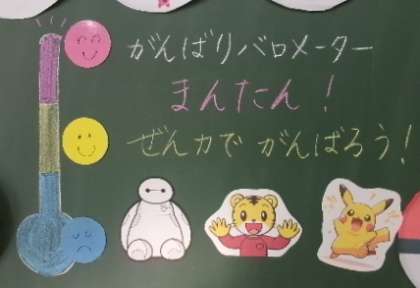 がんばりバロメーター
まんたん！
ぜん力で がんばろう！